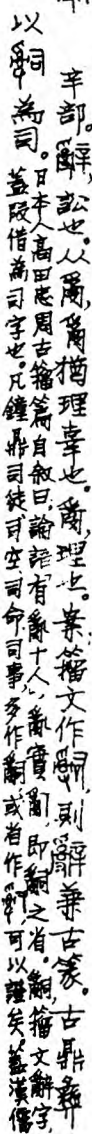 辛部。辭,訟也。从𤔔,𤔔猶理辜也。𤔔,理也。案籀文作𤔲,則辭兼古篆。古鼎彝
以𤔲為司。日本人高田忠周古籀篇自叙曰,論語「有亂十人」,亂實𤔔,即𤔲之省。𤔲,籀文辭字,
蓋段借為司字也。凡鐘鼎司徒司空司命司事,多作𤔲或省作𤔔,可以證矣。蓋漢儒